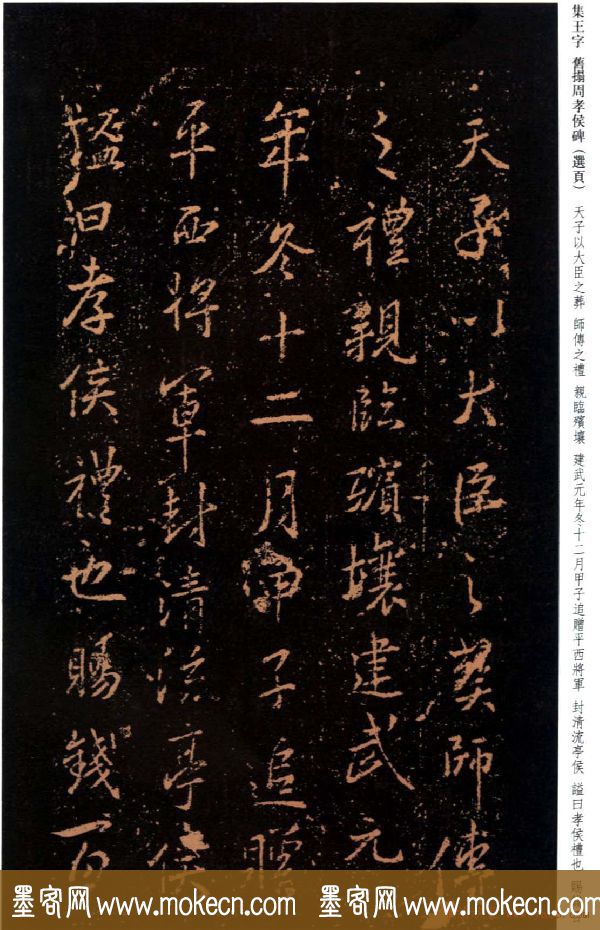 集王字 舊搨周孝侯碑（選頁） 天子以大臣之葬 師傅之禮 親臨殯壤 建武元年冬十二月甲子追贈平西將軍 封清流亭侯 諡曰孝侯禮也
天子以大臣之葬師傅
之禮親臨殯壤建武元
年冬十二月甲子追贈
平西將軍封清流亭侯
諡曰孝侯禮也賜錢百
墨客网 www.mokecn.com 墨客网 www.mokecn.com